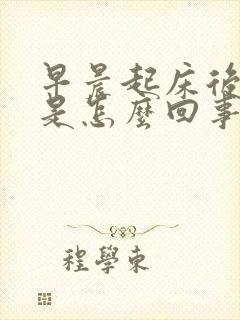 早晨起床後
是怎麼回事
程學東